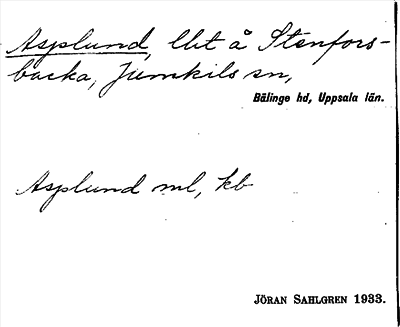 Asplund, llt å Stenfors-
backa, Jumkils sn,
Bälinge hd, Uppsala län.
Asplund ml, kb
JÖRAN SAHLGREN 1933.